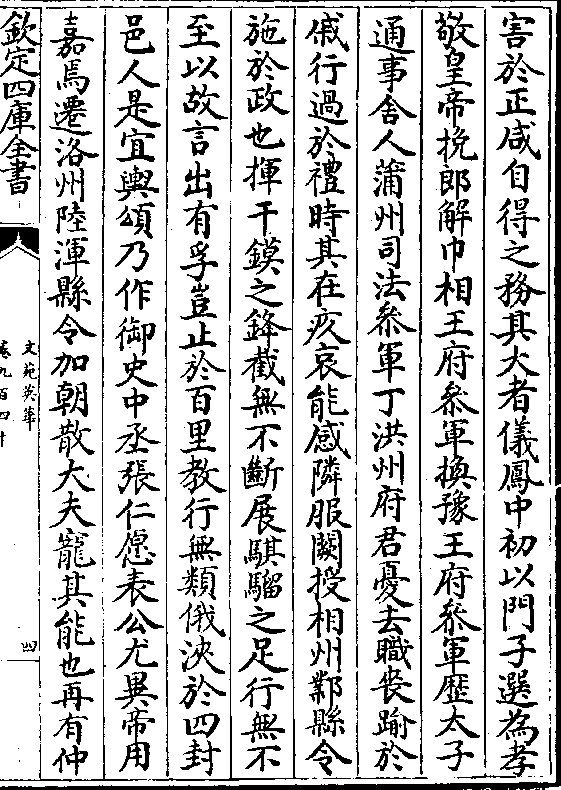 害於正咸自得之務其大者儀鳳中初以門子選為孝
敬皇帝挽郎解巾相王府叅軍換豫王府叅軍歴太子
通事舍人蒲州司法叅軍丁洪州府君憂去職喪踰於
戚行過於禮時其在疚哀能感隣服闋授相州鄴縣令
施於政也揮干鏌之鋒截無不斷展騏騮之足行無不
至以故言出有孚豈止於百里教行無類俄浹於四封
邑人是宜輿頌乃作御史中丞張仁愿表公尤異帝用
嘉焉遷洛州陸渾縣令加朝散大夫寵其能也再有仲
欽定四庫全書
文苑英華
卷九百四十
四